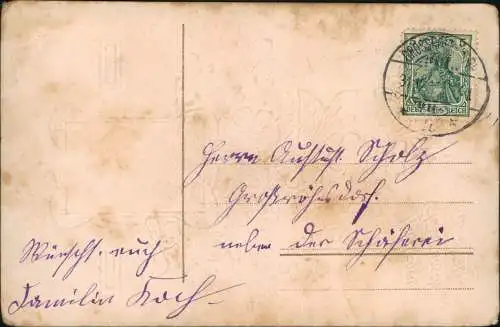 Herrn August Scholz
Großröhrsdorf.
neben der Schäferei
Wünscht euch
Familie Koch
REICH